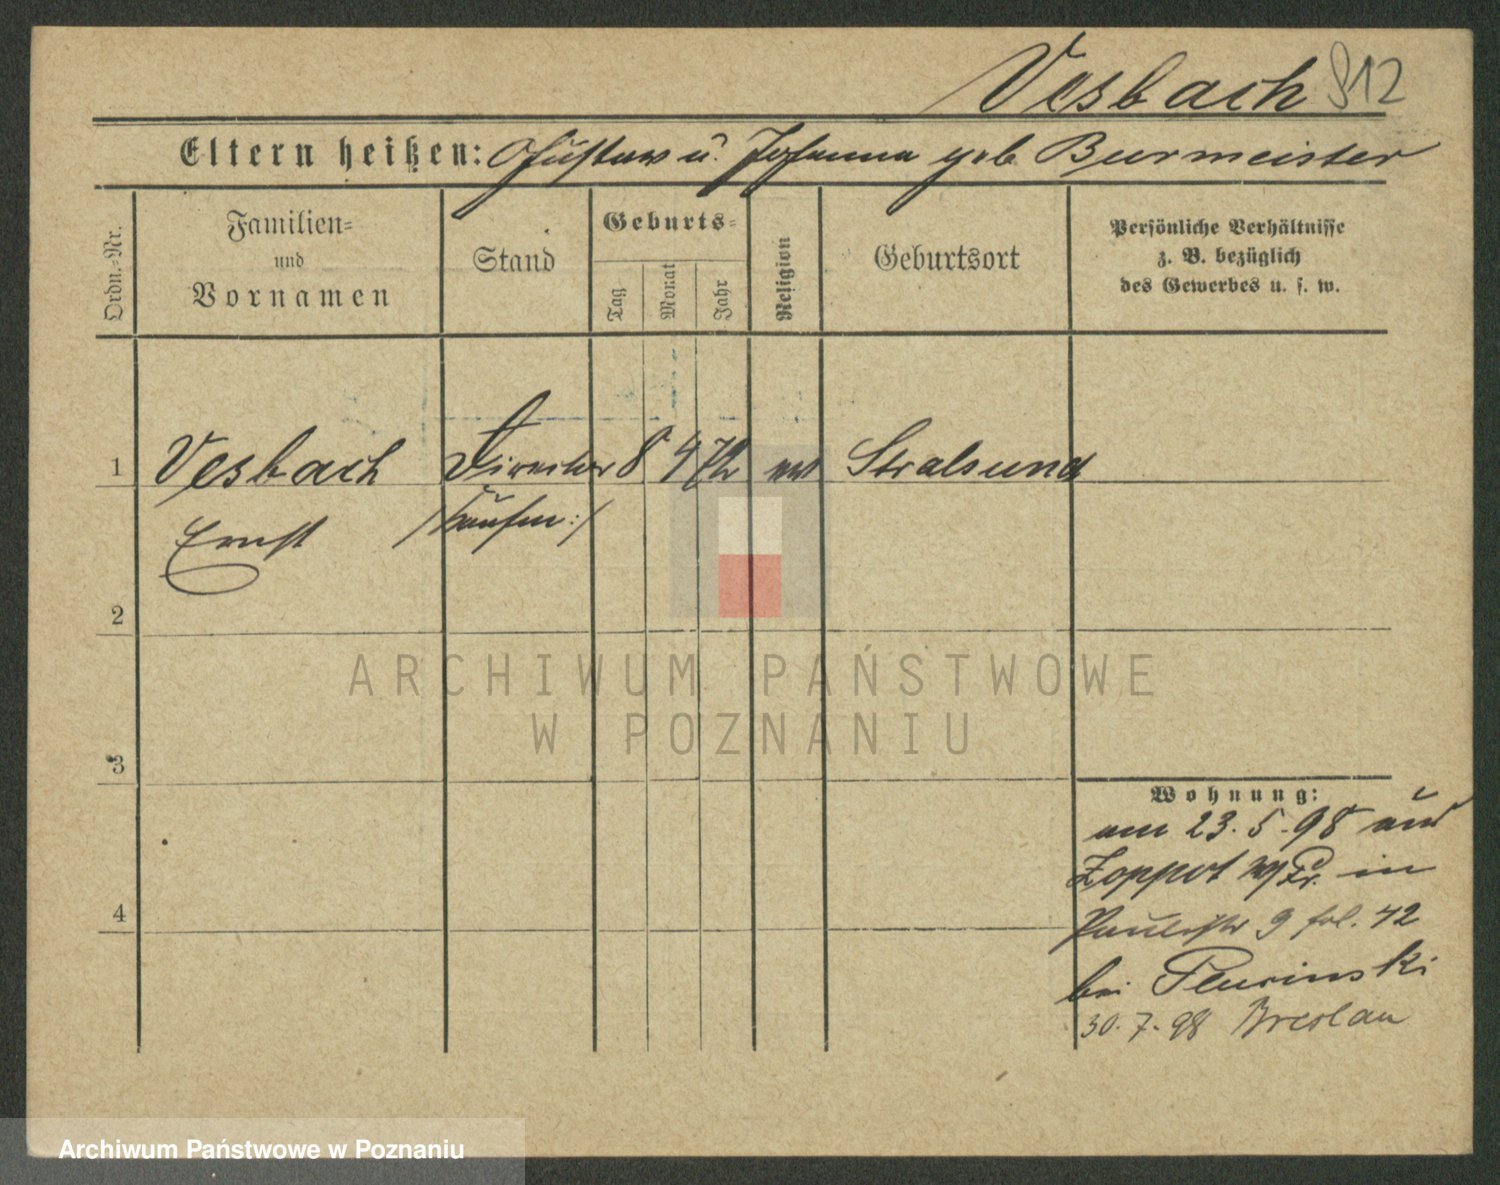 Vesbach 912
Eltern heißen: Gustav u. Johanna geb Burmeister
Ordn.=Nr.
Familien=
und
Vornamen
Stand
Geburts=
Tag
Monat
Jahr
Religion
Geburtsort
Persönliche Verhältnisse
z. B. bezüglich
des Gewerbes u. s. w.
1 Vesbach Director 8 4 72 ev Stralsund
Ernst /: Kaufm :/
2
3
4
ARCHIWUM PAŃSTWOWE
W POZNANIU
Wohnung:
am 23. 5. 98 aus
Zoppot W/Pr. in
Paulistr 9 fol. 42
bei
30. 7. 98 Breslau
Archiwum Państwowe w Poznaniu